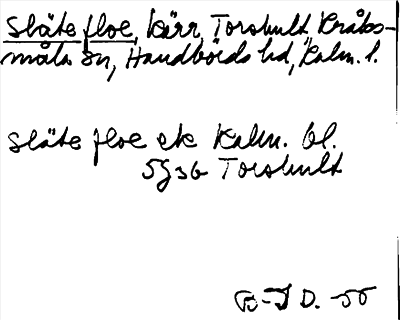 Släte floe, kärr, Torshult Kråks-
måla sn, Handbörds hd, Kalm. l.
Släte floe ek Kalm. bl.
5G3b Torshult
B-J D. -55